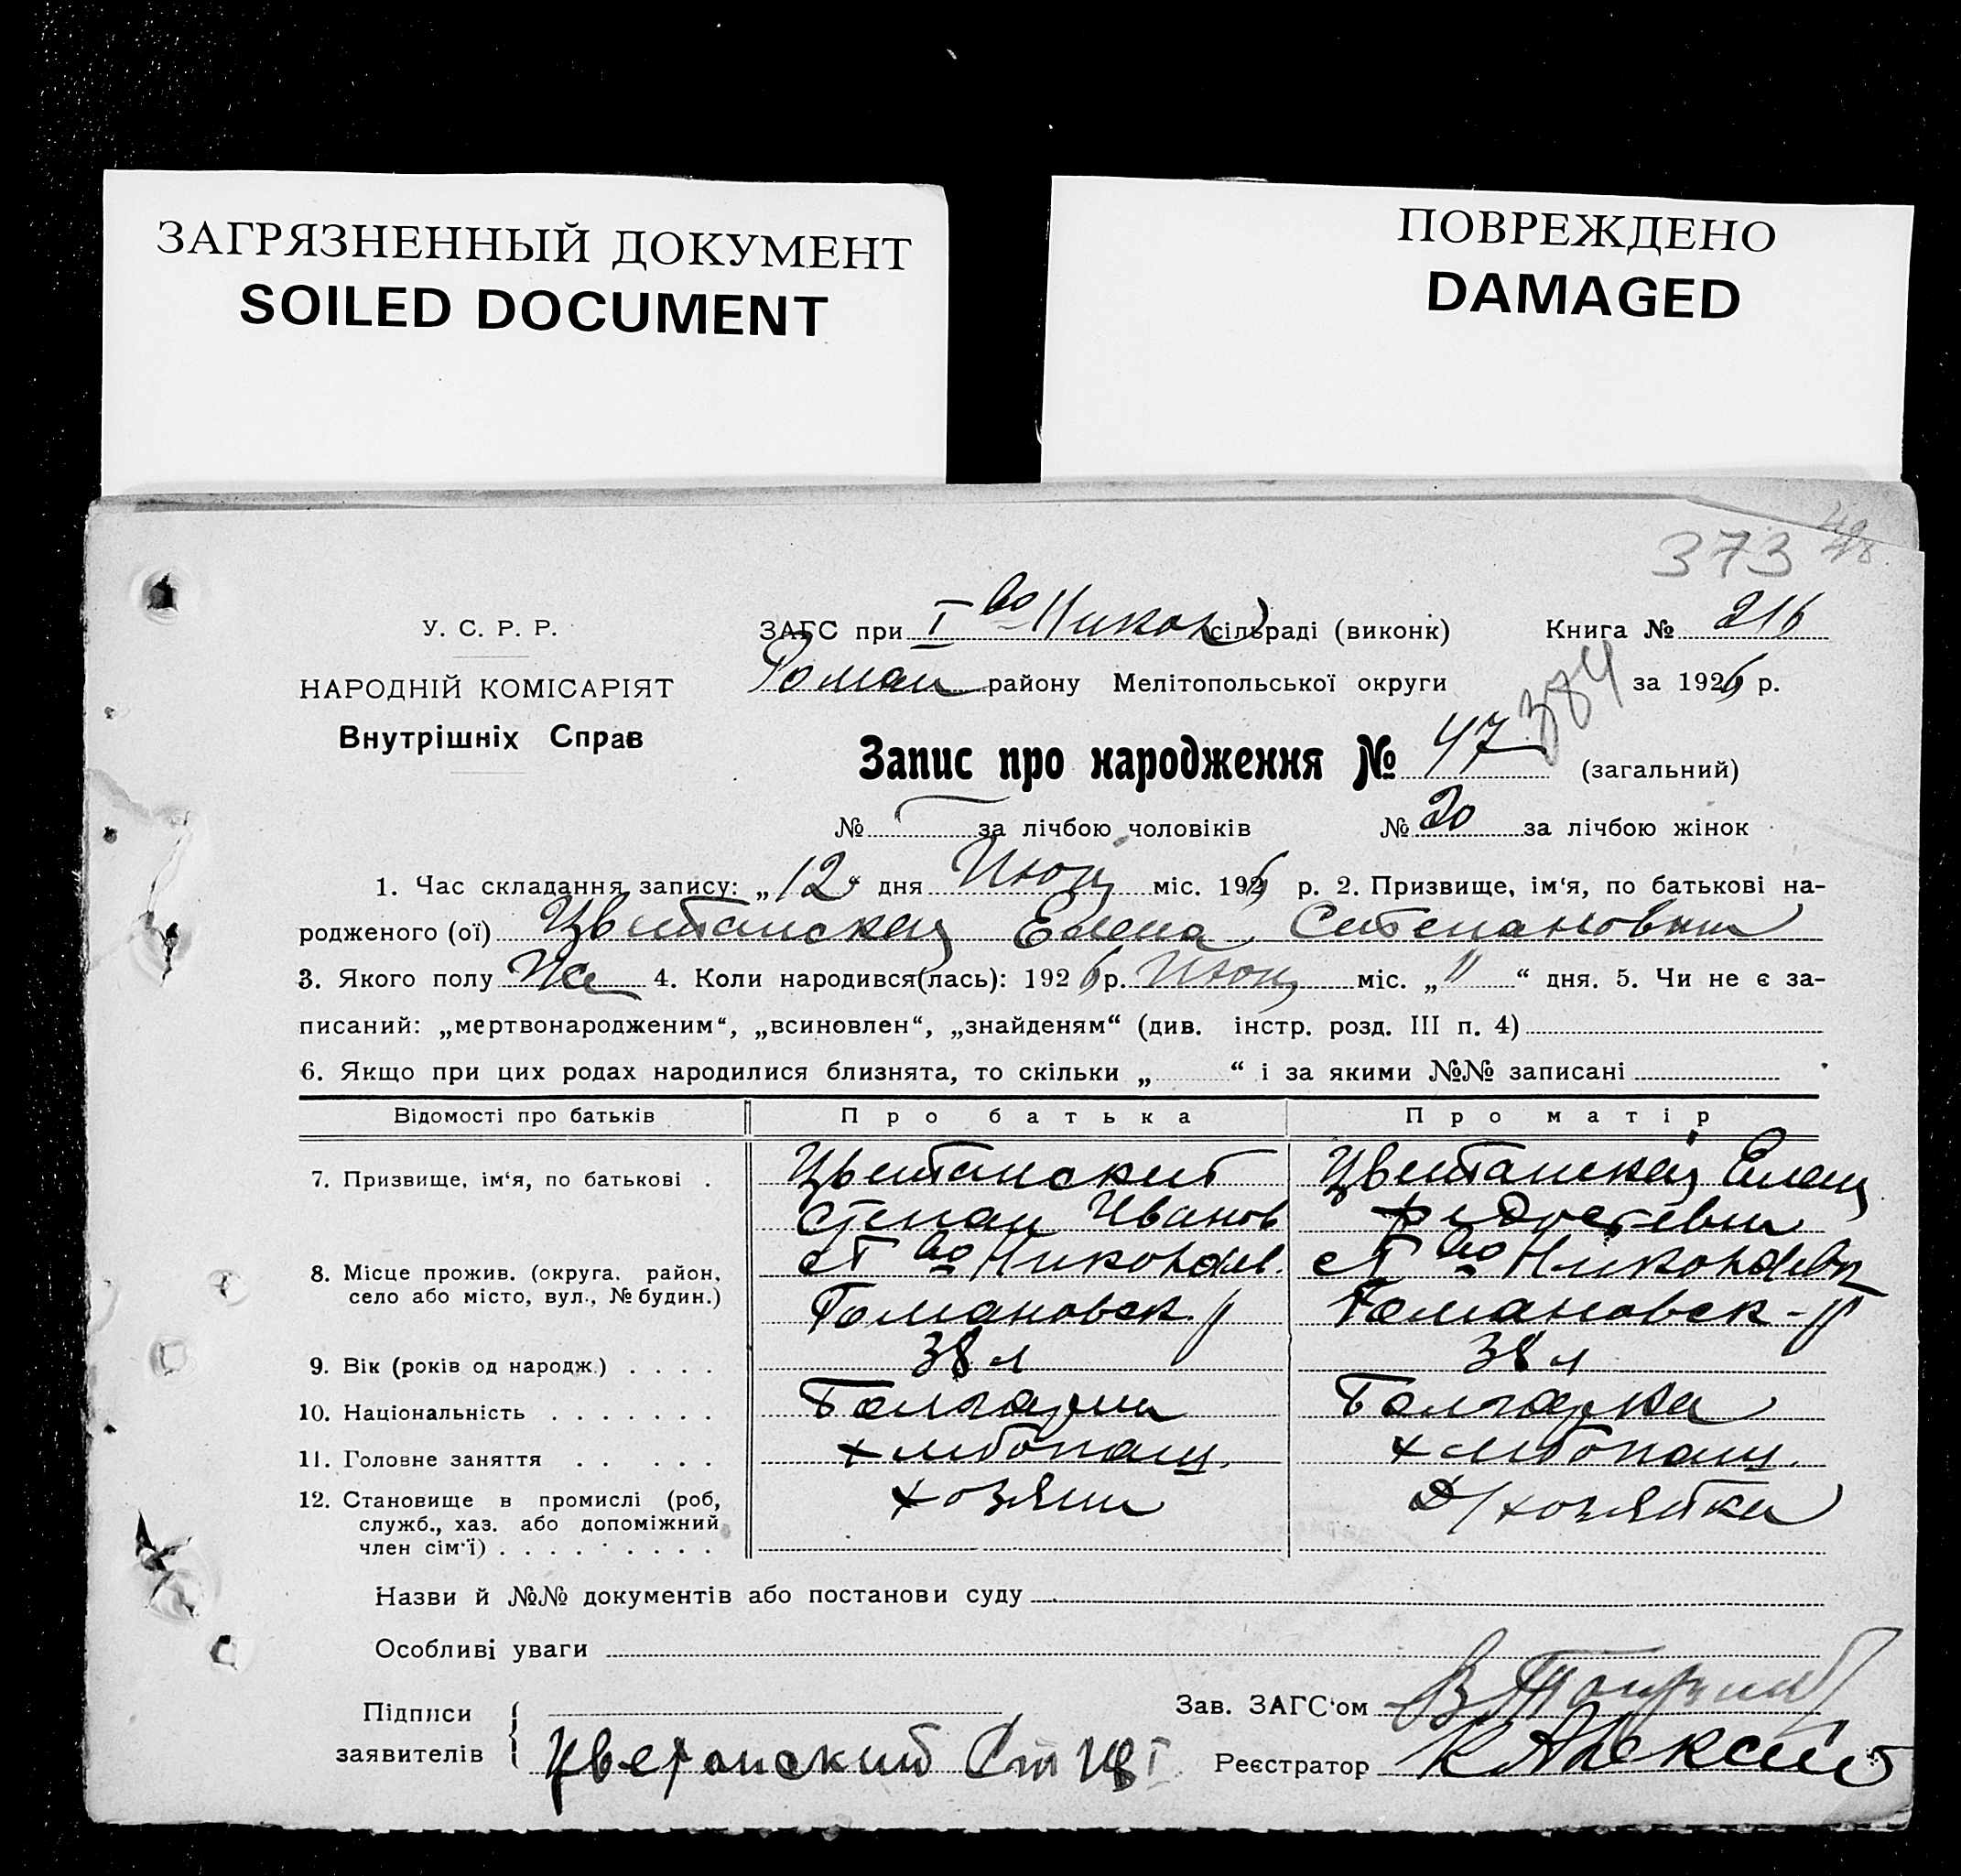 ЗАГРЯЗНЕННЫЙ ДОКУМЕНТ
SOILED DOCUMENT
ПОВРЕЖДЕНО
DAMAGED
373 48
У. С. Р. Р.
НАРОДНІЙ КОМІСАРІЯТ
Внутрішніх Справ
ЗАГС при I во Никол сільраді (виконк) Книга № 216
Роман району Мелітопольської округи за 1926 р.
384
Запис про народження № 47 (загальний)
№ за лічбою чоловіків № 20 за лічбою жінок
1. Час складання запису: „12“ дня Июня міс. 1926 р. 2. Призвище, ім‘я, по батькові на-
родженого (ої) Цветанская Елена Степановна
3. Якого полу Же 4. Коли народився(лась): 1926 р. Июня міс. „11“ дня. 5. Чи не є за-
писаний: „мертвонародженим“, „всиновлен“, „знайденям“ (див. інстр. розд. III п. 4)
6. Якщо при цих родах народилися близнята, то скільки „ “ і за якими №№ записані
Відомості про батьків Про батька Про матір
7. Призвище, ім‘я, по батькові . Цветанский Цветанская Елена
Степан Иванов Федосевн
8. Місце прожив. (округа, район, село або місто, вул., № будин.) с I во Николаев. с I во Николаевк
Романовск. р Романовск - р
9. Вік (років од народж.) . . . . 38 л 38 л
10. Національність . . . . . . . Болгарин Болгарка
11. Головне заняття . . . . . хлебопаш. хлебопаш.
12. Становище в промислі (роб, служб., хаз. або допоміжний член сім‘ї) . . . . . . . . . хозяин Д/хозяйка
Назви й №№ документів або постанови суду
Особливі уваги
Підписи заявителів Цветанский Ст
Зав. ЗАГС‘ом
Реєстратор К Алексан